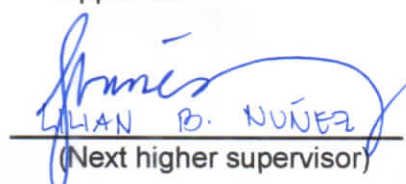 LILIAN B. NUÑEZ
(Next higher supervisor)